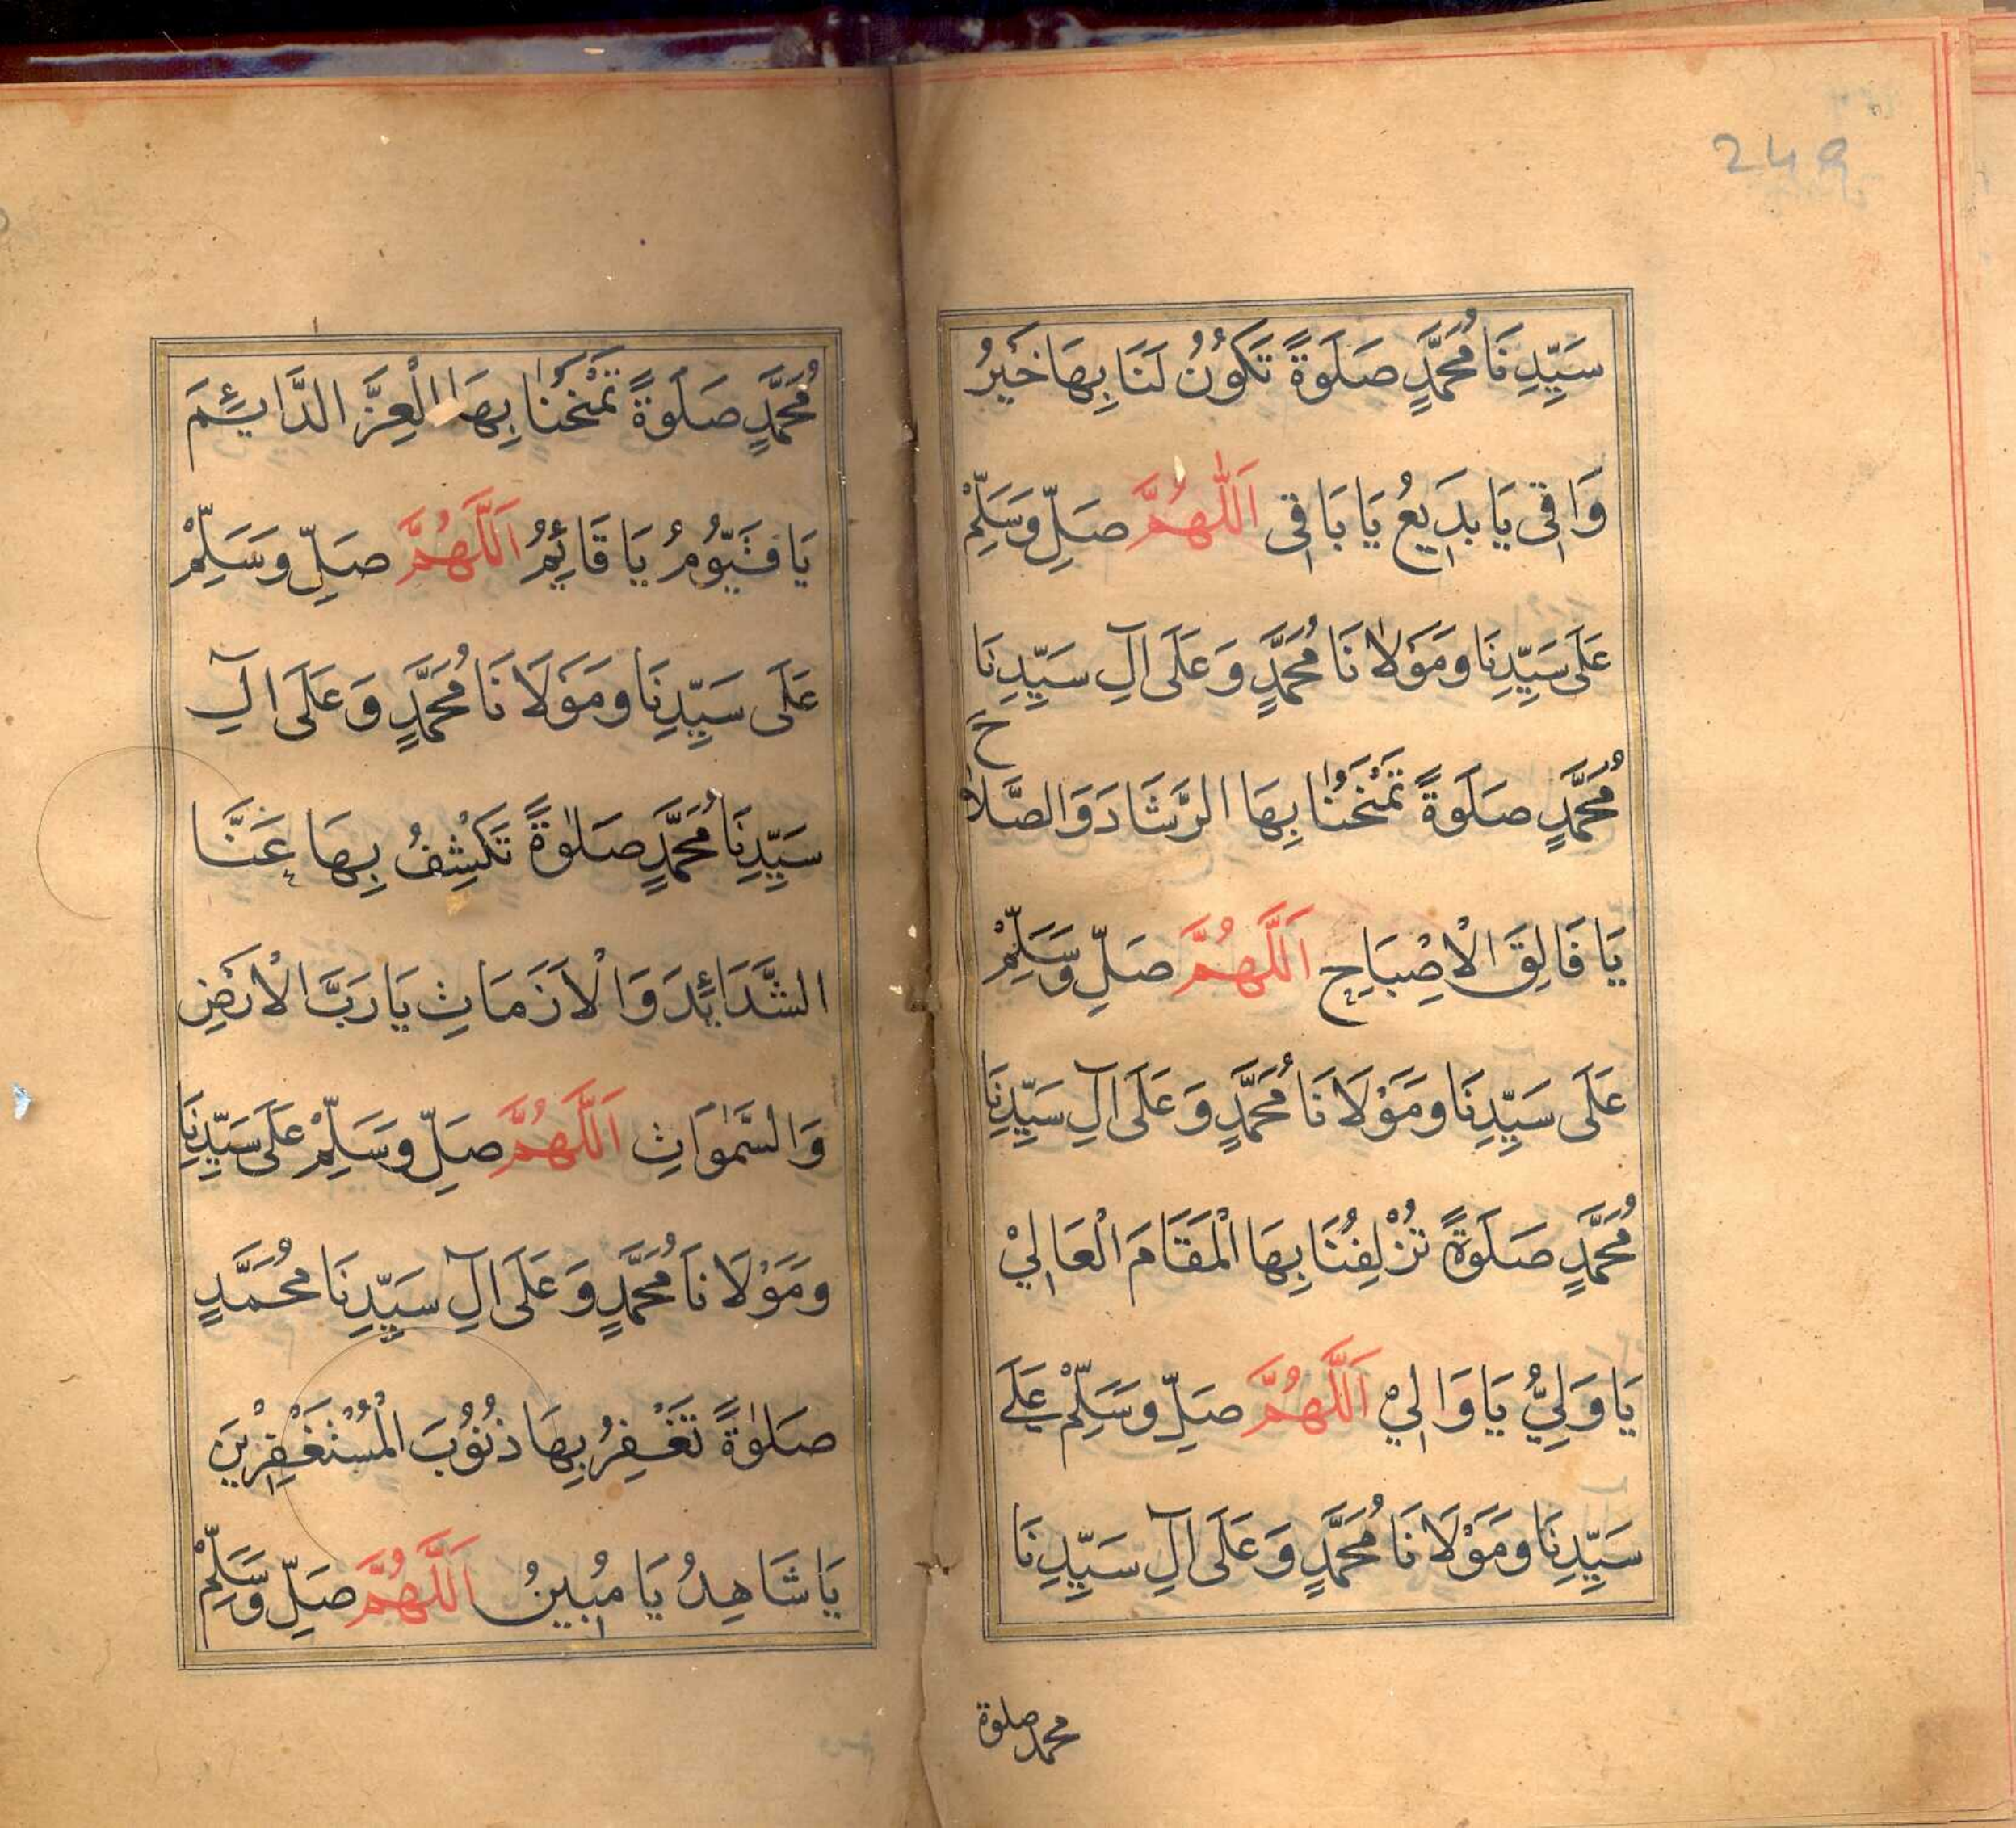 249
سَيِّدِنَا مُحَمَّدٍ صَلَوةً تَكُوْنُ لَنَا بِهَا خَيْرُ
وَاقِي يَا بَدِيعُ يَا بَاقِي اَللّٰهُمَّ صَلِّ وَسَلِّمْ
عَلَى سَيِّدِنَا وَمَوْلَانَا مُحَمَّدٍ وَعَلَى آلِ سَيِّدِنَا
مُحَمَّدٍ صَلَوةً تَمْنَحُنَا بِهَا الرَّشَادَ وَالصَّلَاحَ
يَا فَالِقَ الْاِصْبَاحِ اَللَّهُمَّ صَلِّ وَسَلِّمْ
عَلَى سَيِّدِنَا وَمَوْلَانَا مُحَمَّدٍ وَعَلَى آلِ سَيِّدِنَا
مُحَمَّدٍ صَلَوةً تُزْلِفُنَا بِهَا الْمَقَامَ الْعَالِيْ
يَا وَلِيُّ يَا وَالِيْ اَللَّهُمَّ صَلِّ وَسَلِّمْ عَلَے
سَيِّدِنَا وَمَوْلَانَا مُحَمَّدٍ وَعَلَى آلِ سَيِّدِنَا
محمد صلوة
مُحَمَّدٍ صَلَوةً تَمْنَحُنَا بِهَا الْعِزَّ الدَّائِمَ
يَا قَيُّوْمُ يَا قَائِمُ اَللَّهُمَّ صَلِّ وَسَلِّمْ
عَلَى سَيِّدِنَا وَمَوْلَانَا مُحَمَّدٍ وَعَلَى آلِ
سَيِّدِنَا مُحَمَّدٍ صَلٰوةً تَكْشِفُ بِهَا عَنَّا
الشَّدَائِدَ وَالْاَزَمَاتِ يَا رَبَّ الْاَرْضِ
وَالسَّمٰوَاتِ اَللَّهُمَّ صَلِّ وَسَلِّمْ عَلَى سَيِّدِنَا
وَمَوْلَانَا مُحَمَّدٍ وَعَلَى آلِ سَيِّدِنَا مُحَمَّدٍ
صَلٰوةً تَغْفِرُ بِهَا ذُنُوْبَ الْمُسْتَغْفِرِيْنَ
يَا شَاهِدُ يَا مُبِينُ اَللَّهُمَّ صَلِّ وَسَلِّمْ